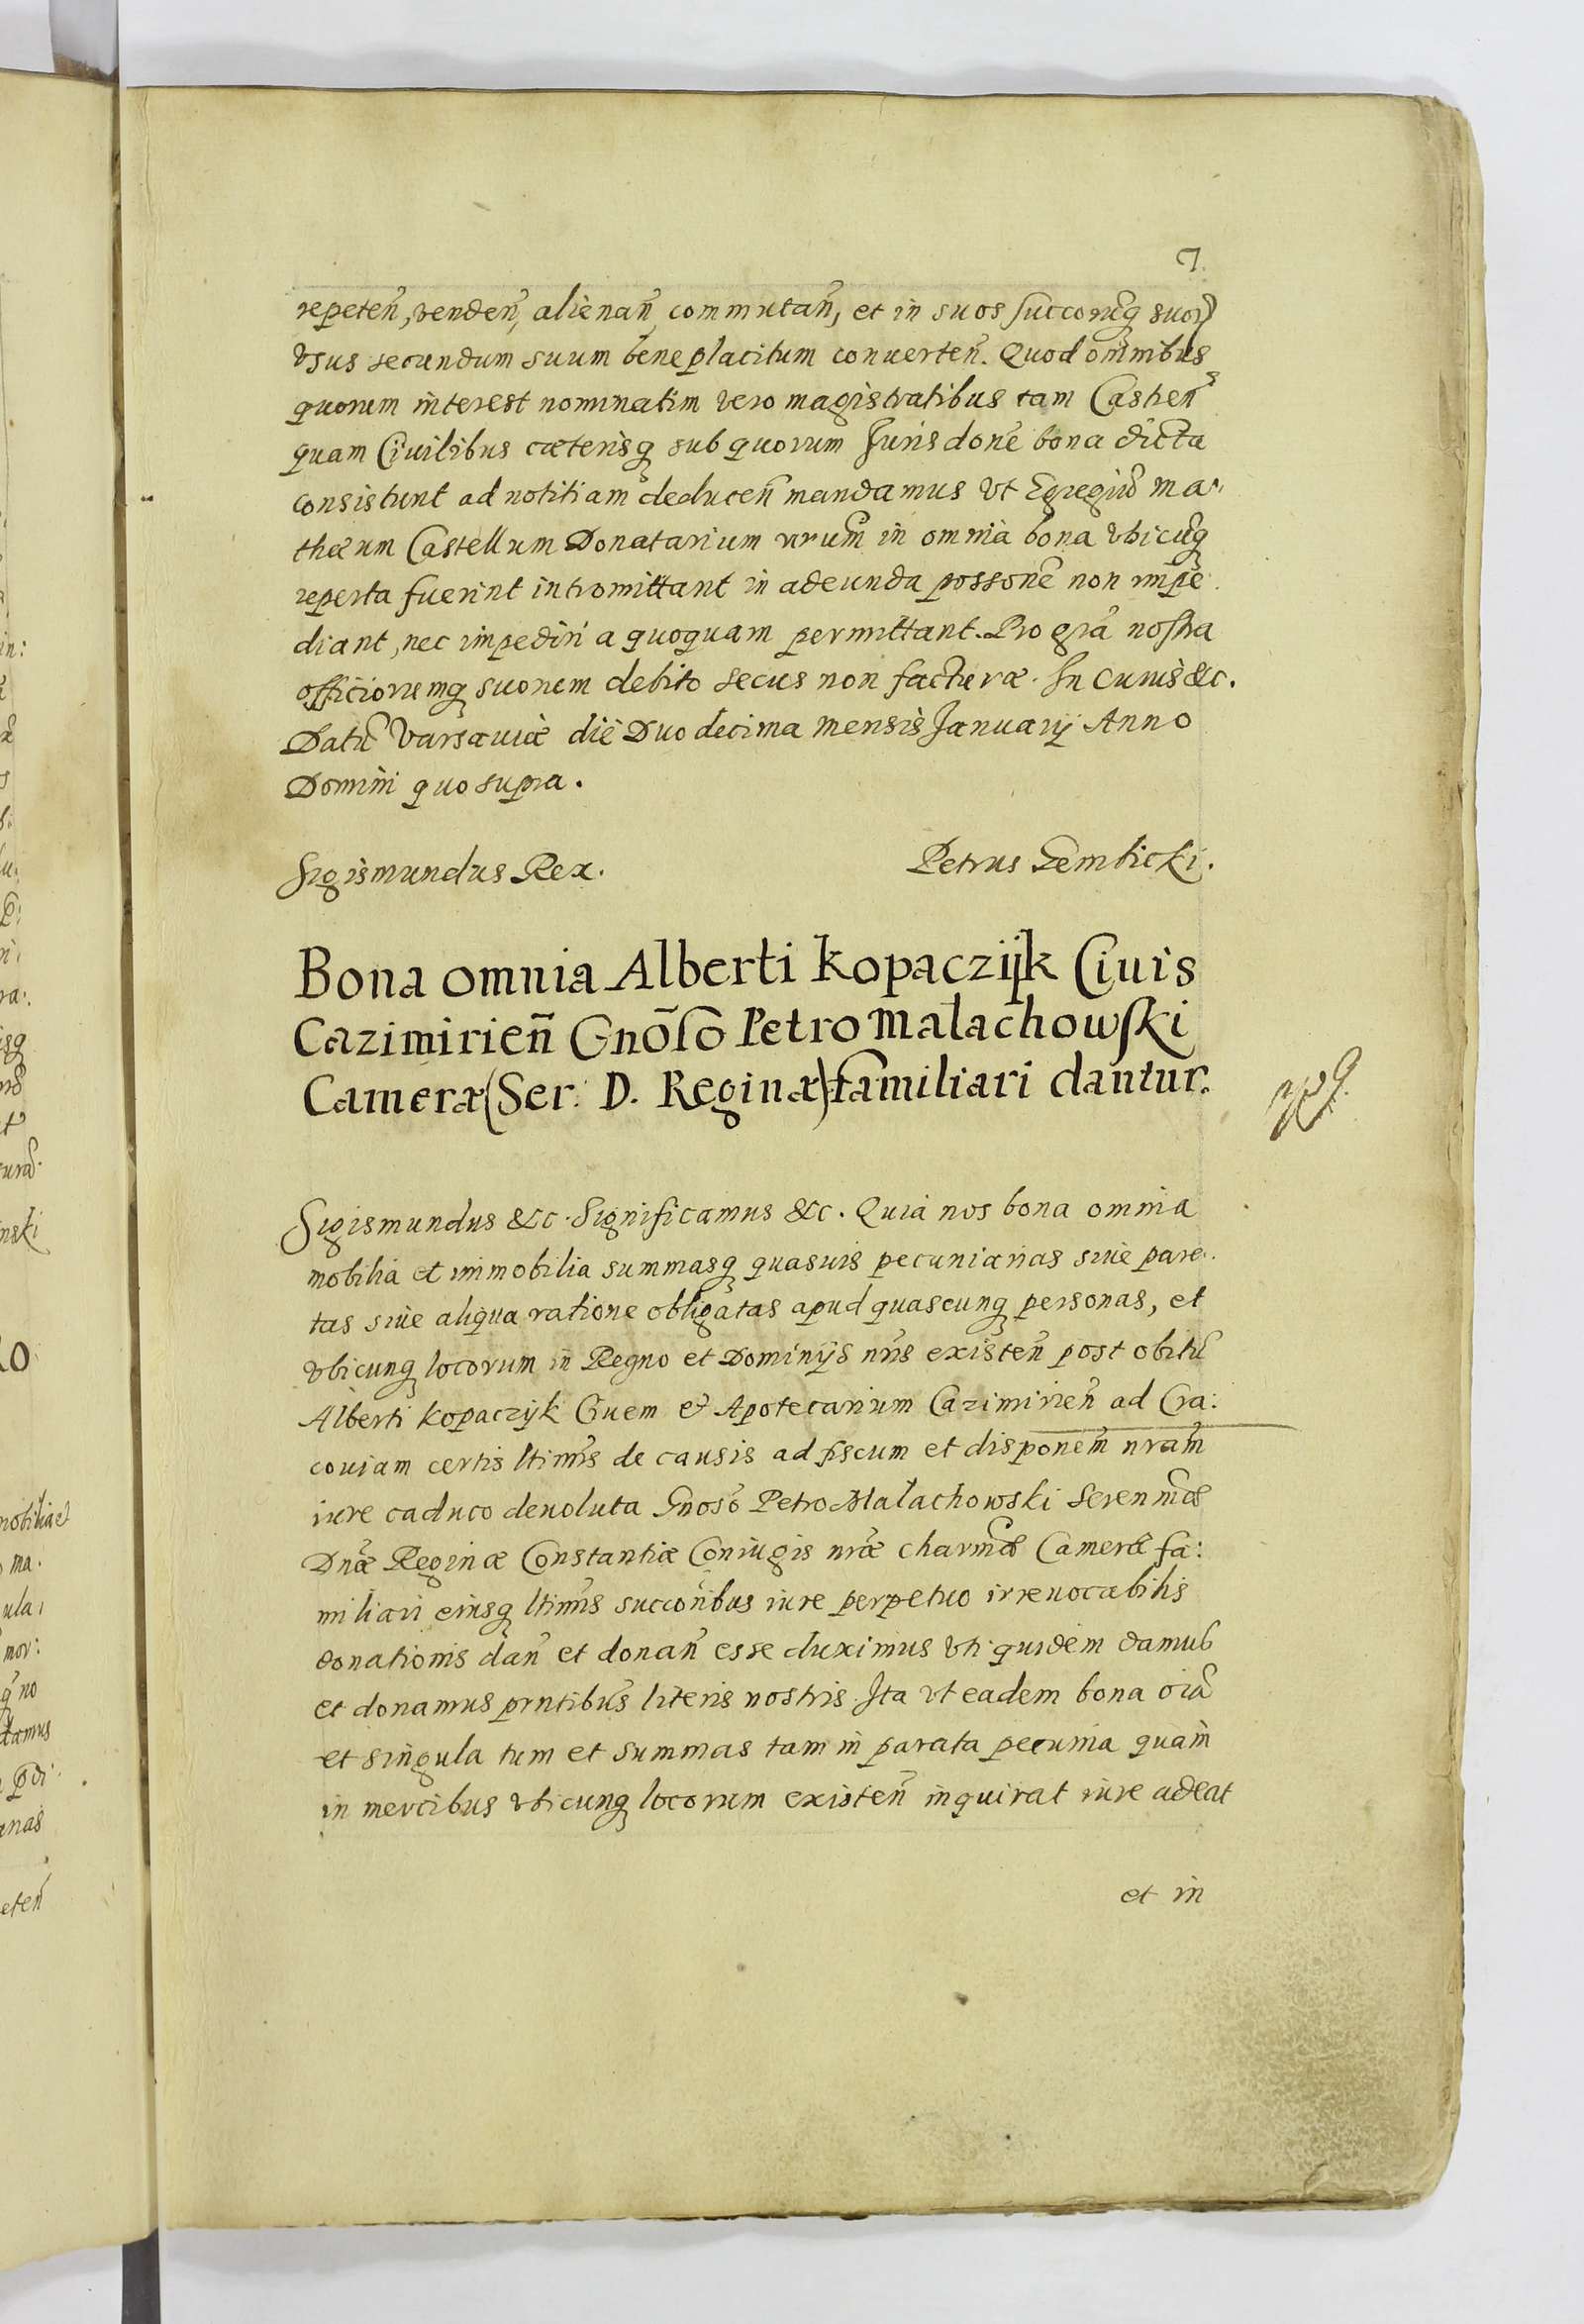 7.
repeten̄, venden̄, alienan̄, commutan̄, et in suos succorūq̨ suor̄
vsus secundum suum beneplacitum conuerten̄. Quod om̄nibus
quorum interest nominatim vero magistratibus tam Castren̄s
quam Ciuilibus cæterisq̨ sub quorum Jurisdone bona dicta
consistunt ad notitiam deducen̄ mandamus vt Egregiū Ma-
thæum Castellum Donatarium nrum̄ in omnia bona vbicūq̨
reperta fuerint intromittant in adeunda possone̅ non impe
diant, nec impediri a quoquam permittant. Pro gra̅ nostra
officiorumq̨ suorum debito secus non facturæ. In cuius &c.
Datū Varsauiæ die Duodecima mensis Januarij Anno
Domini quo supra.
Sigismundus Rex.
Petrus Gembicki.
Bona omnia Alberti Kopaczijk Ciuis
Cazimirien̄ Gnōso Petro Malachowski
Cameræ (Ser. D. Reginæ) familiari dantur.
Sigismundus &c. Significamus &c. Quia nos bona omnia
mobilia et immobilia summasq̨ quasuis pecuniarias siue para-
tas siue aliqua ratione obligatas apud quascunq̨ personas, et
vbicunq̨ locorum in Regno et Dominijs nr̄is existen̄ post obitū
Alberti Kopaczijk Ciuem et Apotecarium Cazimirien̄ ad Cra:
couiam certis ltim̄is de causis ad fiscum et disponem̄ nram̄
iure caduco deuoluta Gnoso̅ Petro Malachowski Seren̄mæ
Dnæ̅ Reginæ Constantiæ Coniugis nræ̅ charm̄æ Cameræ fa:
miliari eiusq̨ ltim̄is succoribus iure perpetuo irreuocabilis
donationis dan̄ et donan̄ esse duximus vti quidem damus
et donamus prntibus̄ literis nostris. Ita vt eadem bona oia̅
et singula tum et summas tam in parata pecunia quam
in mercibus vbicunq̨ locorum existen̄ inquirat iure adeat
et in